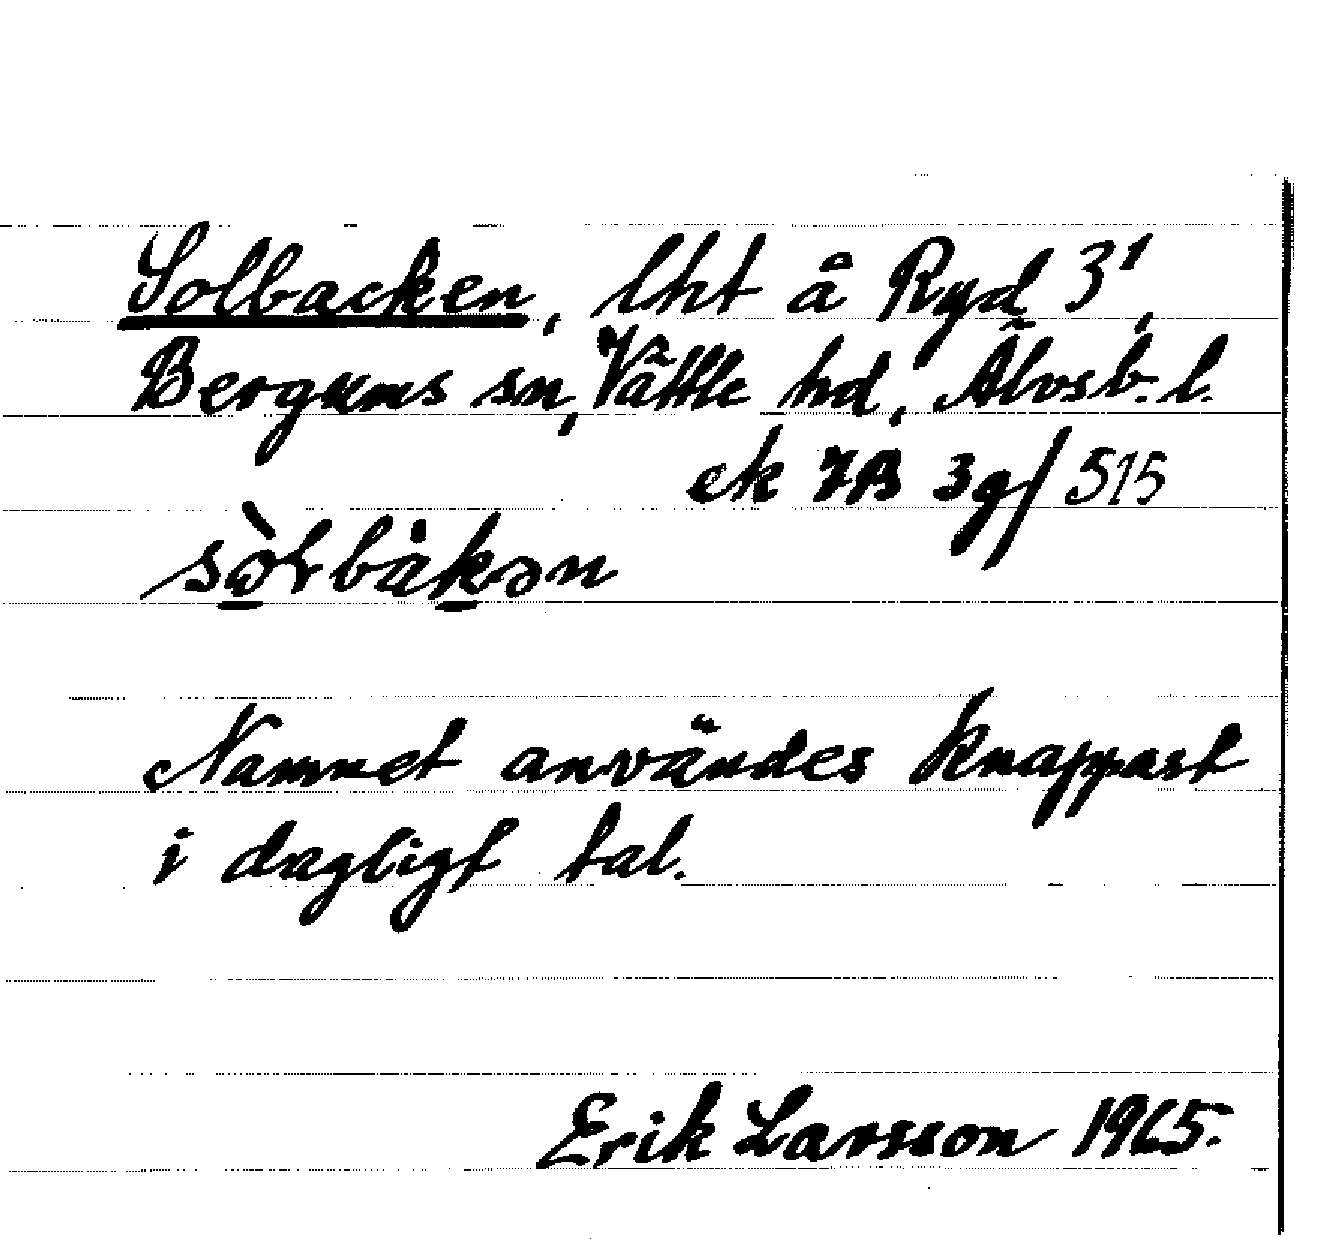 Solbacken, lht å Ryd 3¹,
Bergums sn, Vättle hd, Älvsb. l.
ek 7B 3g/515
sò̠lbàk̠ən
Namnet användes knappast
i dagligt tal.
Erik Larsson 1965.